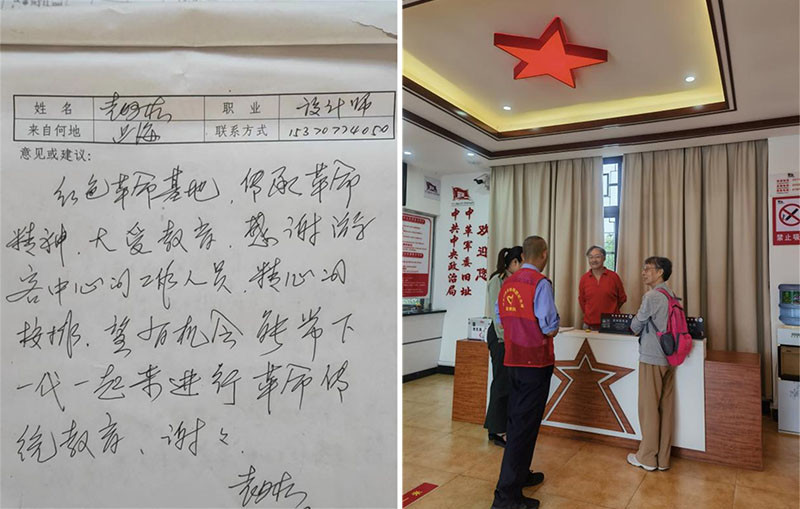 姓 名 职 业 设计师
来自何地 上海 联系方式 15370774050
意见或建议:
红色革命基地,传承革命
精神,大受教育,感谢游
客中心的工作人员,精心的
安排,望有机会能带下
一代一起来进行革命传
统教育、谢谢
欢迎您
中革军委旧址
中共中央政治局
禁止吸